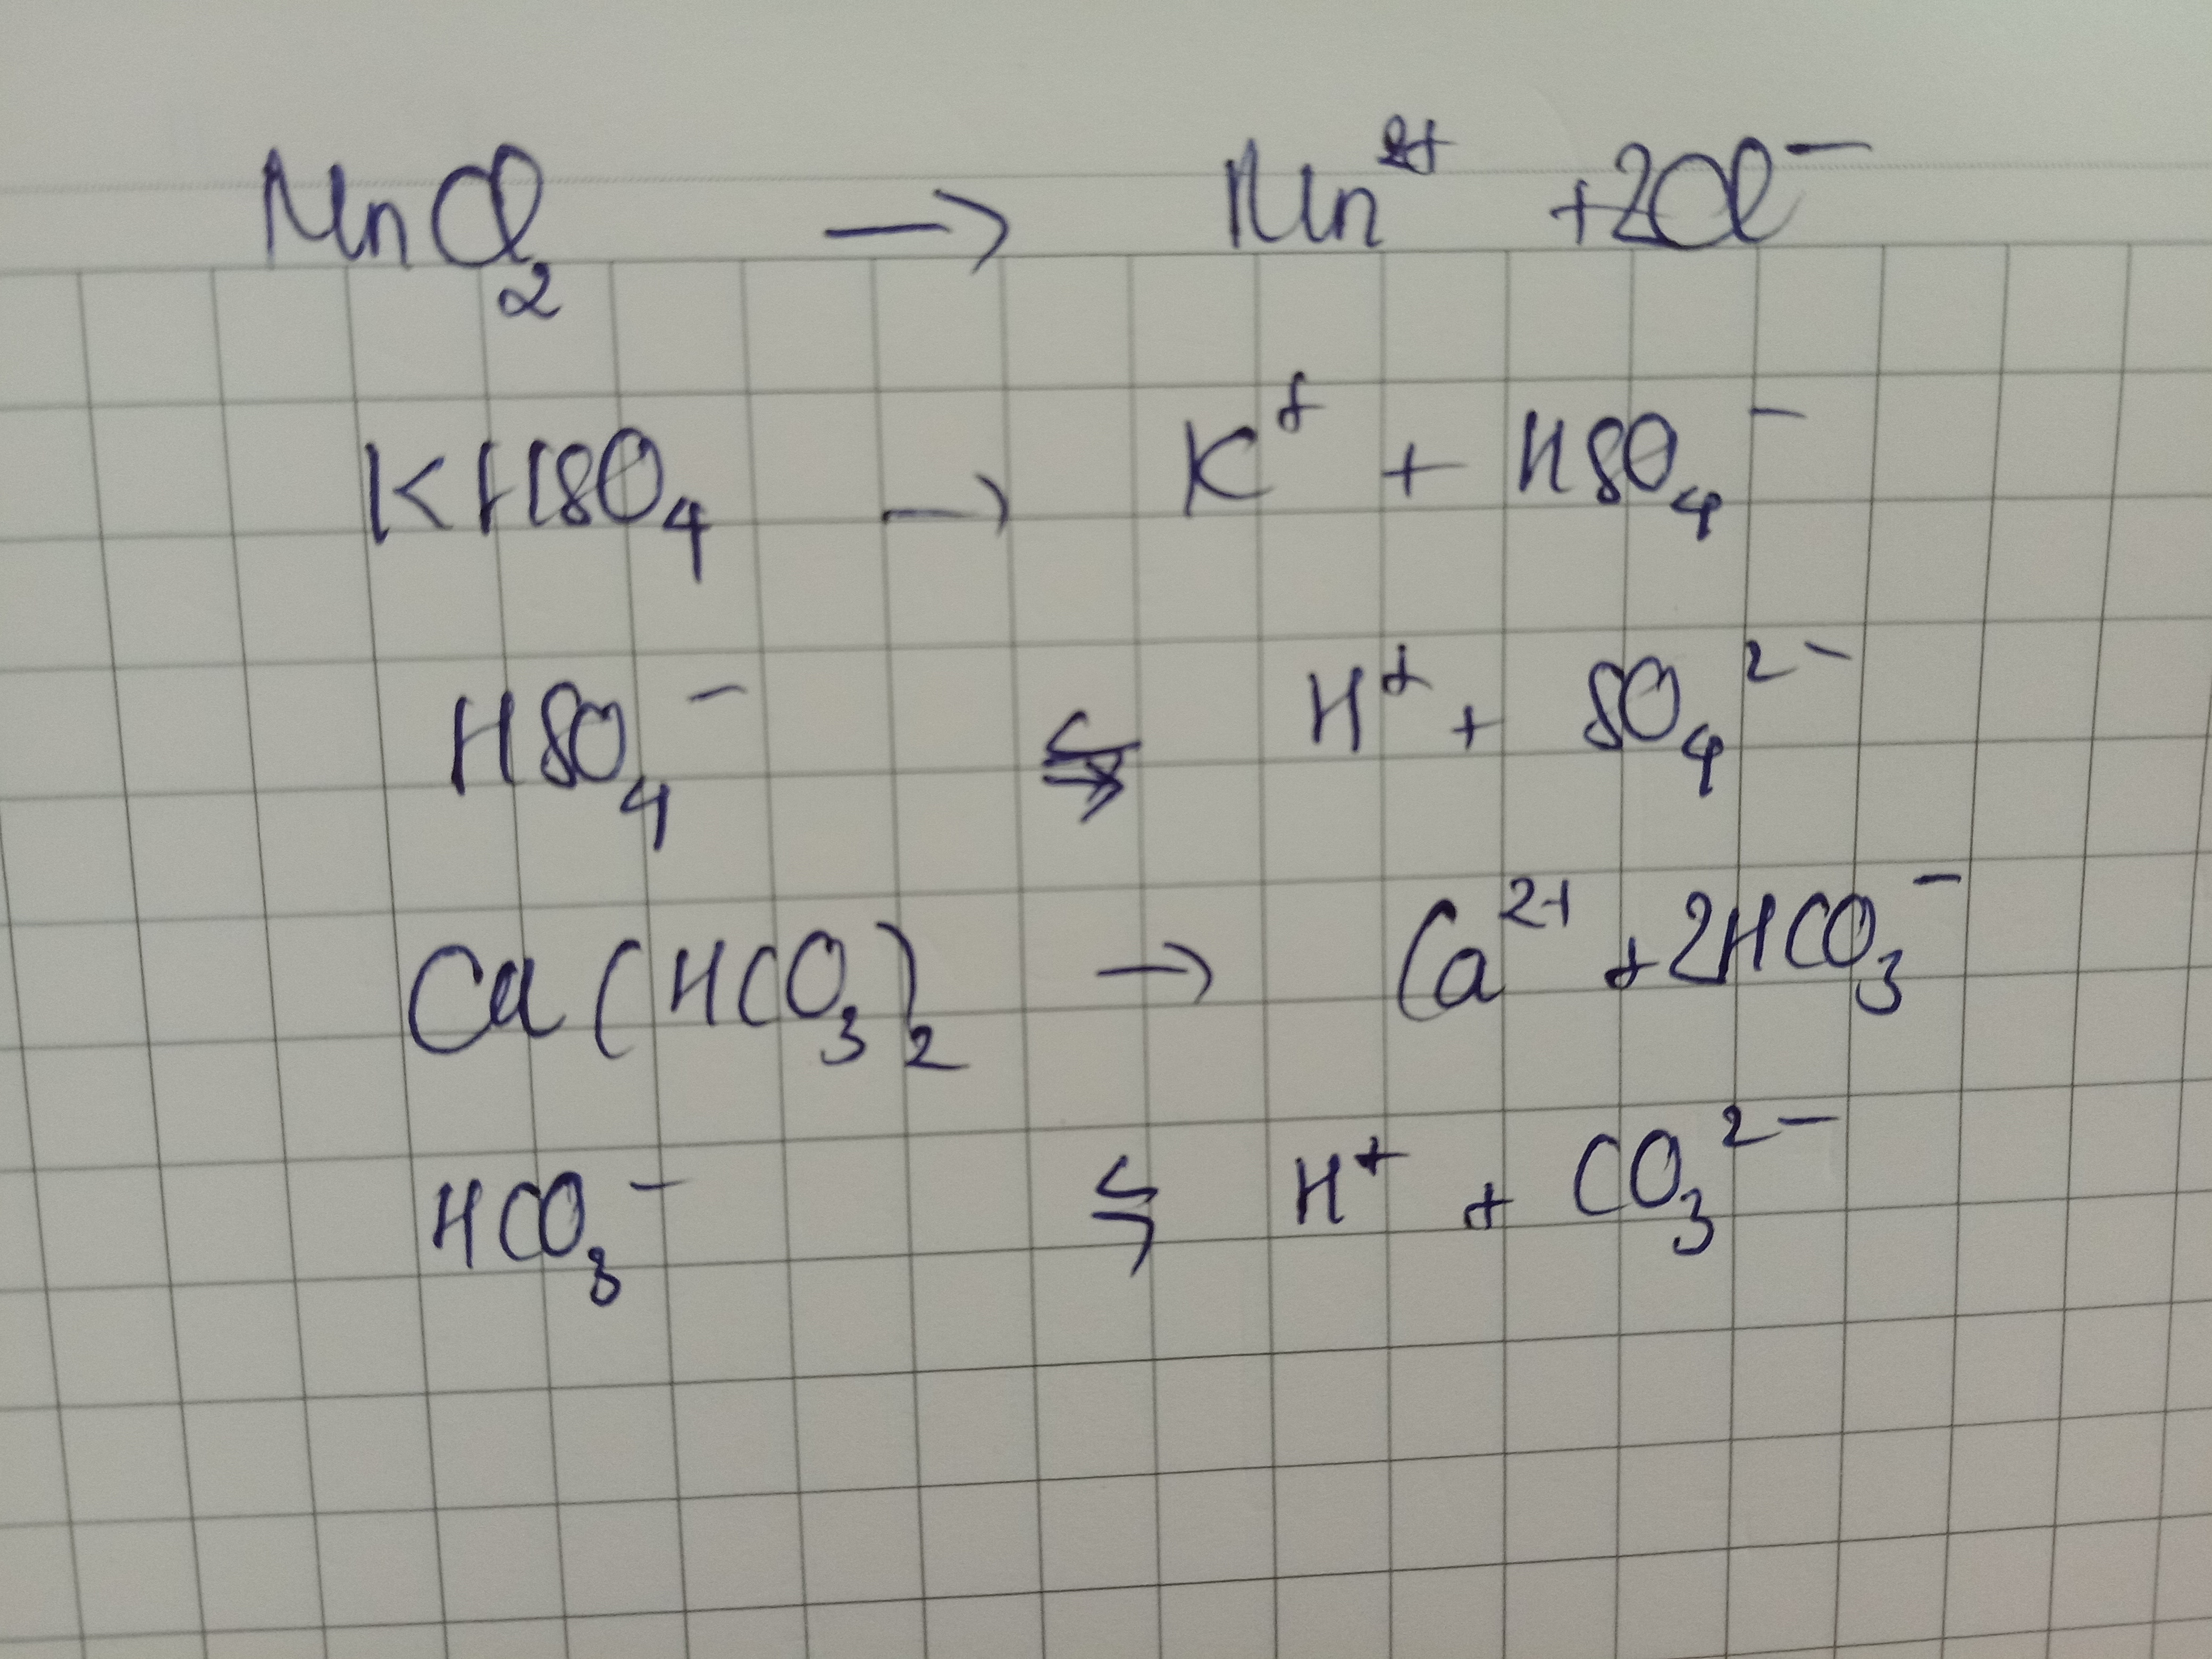 MnCl₂ → Mn²⁺ + 2Cl⁻
KHSO₄ → K⁺ + HSO₄⁻
HSO₄⁻ ⇆ H⁺ + SO₄²⁻
Ca(HCO₃)₂ → Ca²⁺ + 2HCO₃⁻
HCO₃⁻ ⇆ H⁺ + CO₃²⁻